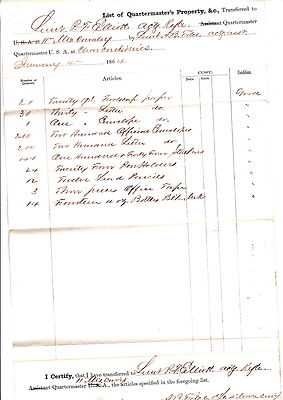 List of Quartermaster's Property, &c., Transferred to
Lieut R F Elliott
Assistant Quartermaster
U. S. A. at by Lieut
Quartermaster U. S. A. at
January 186
Number or Quantity. Articles. COST. Condition.
Dols. Cts.
20 Twenty Foolscap paper Good
30 Thirty " Letter do "
1 One " Envelope do "
200 Two Hundred Official Envelopes "
200 Two Hundred Letter do "
144 One Hundred & Forty Four "
24 Twenty Four Pen Holders "
12 Twelve Lead Pencils "
3 Three pieces Office Tape "
14 Fourteen oz Bottles Blk Ink "
I Certify, that I have transferred to Lieut R F Elliott
Assistant Quartermaster U. S. A., the articles specified in the foregoing list.